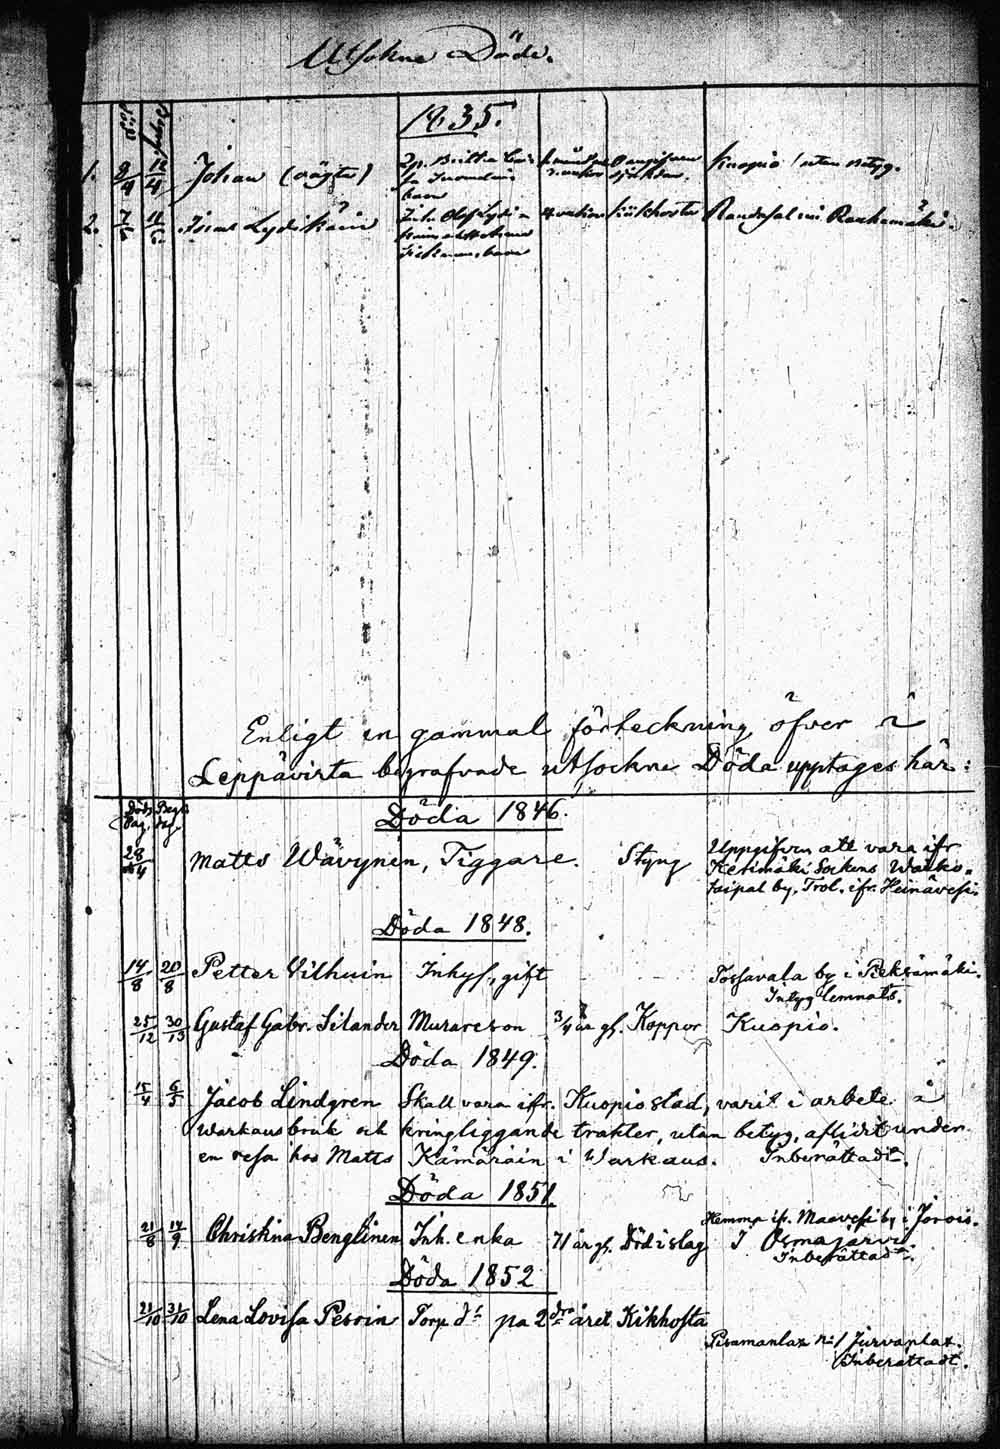 Utsokne Döde.
1835.
1. 9/4 12/4 Johan (oägta) Kuopio utan betyg.
2. 7 11 Lydikäin 4 veckor kikhosta Randasalmi
Enligt en gammal förteckning öfver i
Leppävirta begrafvade utsockne Döda upptages här:
Döda 1846.
28/4 Matts Wävynén, Tiggare. Styng Uppgifven att vara ifr.
Kerimäki Sockens
taipal by. Trol. ifr. Heinävesi.
Döda 1848.
14/8 20/8 Petter Vilhuin Inhys., gift Tossavala by i Pieksämäki.
Intyg lemnats.
25/12 30/13 Gustaf Gabr. Silander Murareson 3/4 år gl. Koppor Kuopio.
Döda 1849.
15/4 6/5 Jacob Lindgren Skall vara ifr. Kuopio stad, varit i arbete å
Warkausbruk och kringliggande trakter, utan betyg, aflidit under
en resa hos Matts Kämäräin i Warkaus. Inberättadt.
Döda 1851
21/8 14/9 Christina Benglinen Inh. enka 71 år gl. Död i slag Hemma ifr. Maavesi by i Jorois.
I Osmajärvi
Inberättadt.
Döda 1852
21/10 31/10 Lena Lovisa Pesoin Torp. dr på 2dra året Kikhosta
No 1 Jurvanlax.
Inberättadt.